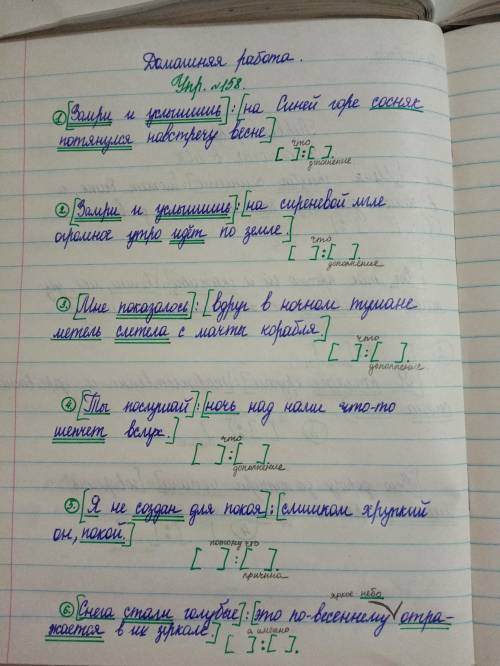 Домашняя работа.
Упр. №158.
1) [Замри и услышишь]:[на Синей горе сосняк
потянулся навстречу весне]
что
[ ]:[ ].
дополнение
2) [Замри и услышишь]:[на сиреневой мгле
огромное утро идёт по земле.]
что
[ ]:[ ].
дополнение
3. [Мне показалось]:[вдруг в ночном тумане
метель слетела с мачты корабля]
что
[ ]:[ ].
дополнение
4. [Ты послушай]:[ночь над нами что-то
шепчет вслух.]
что
[ ]:[ ].
дополнение
5. [Я не создан для покоя]:[слишком хрупкий
он, покой.]
потому что
[ ]:[ ].
причина
яркое небо
6. [Снега стали голубые]:[это по-весеннему отра-
жается в их зеркале.]
а именно
[ ]:[ ].